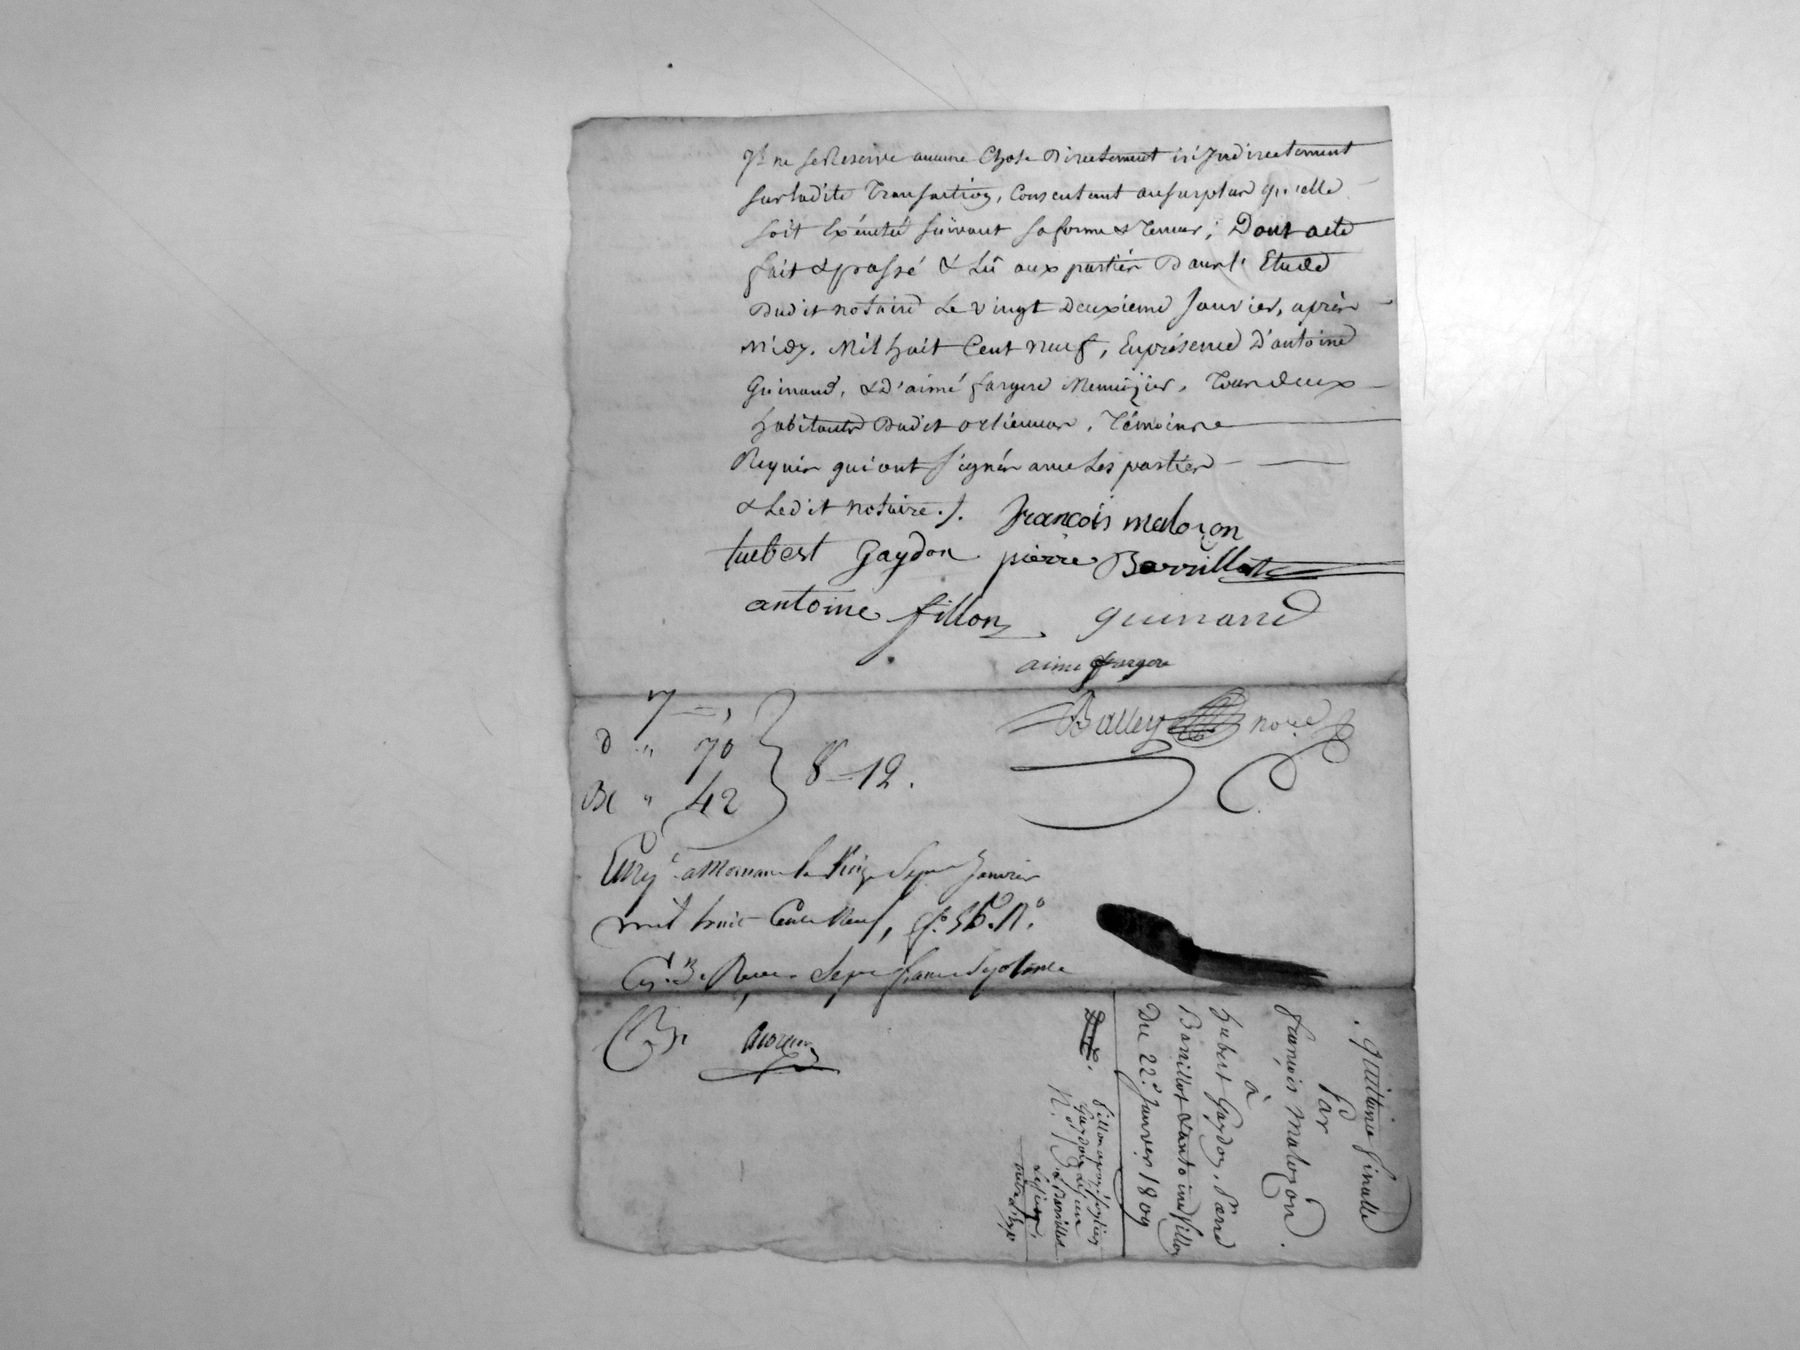 Il ne se Reserve aucune Chose Directement ni Indirectement
sur ladite Transaction, Consentant au surplus qu'elle
soit Exécuté suivant sa forme & Teneur; Dont acte
fait & passé & Lû aux parties Dans l'Etude
Dudit notaire Le vingt Deuxieme Janvier, après
Midy. Mil huit Cent neuf, En présence D'antoine
Guinand, & D'aimé fargere Menuizier, Tous deux
habitants Dudit orliennas, Témoins
Requis qui ont signés avec Les parties
& Ledit notaire ./.
françois malozon
hubert Gaydon pierre Barrillot
antoine fillon guinand
aimé fargere
Balley nore
7 = ,
D " 70
" 42
8 - 12.
Enrgé a Mornant le Vingt Sept Janvier
mil huit Cent Neuf, fo. 56. Ro.
Cs. 3. Reçu Sept francs
quittance finalle
Par
françois Malozon.
à
hubert Gaydon, Piere
Barrillot & antoine fillon
Du 22e. Janvier 1809